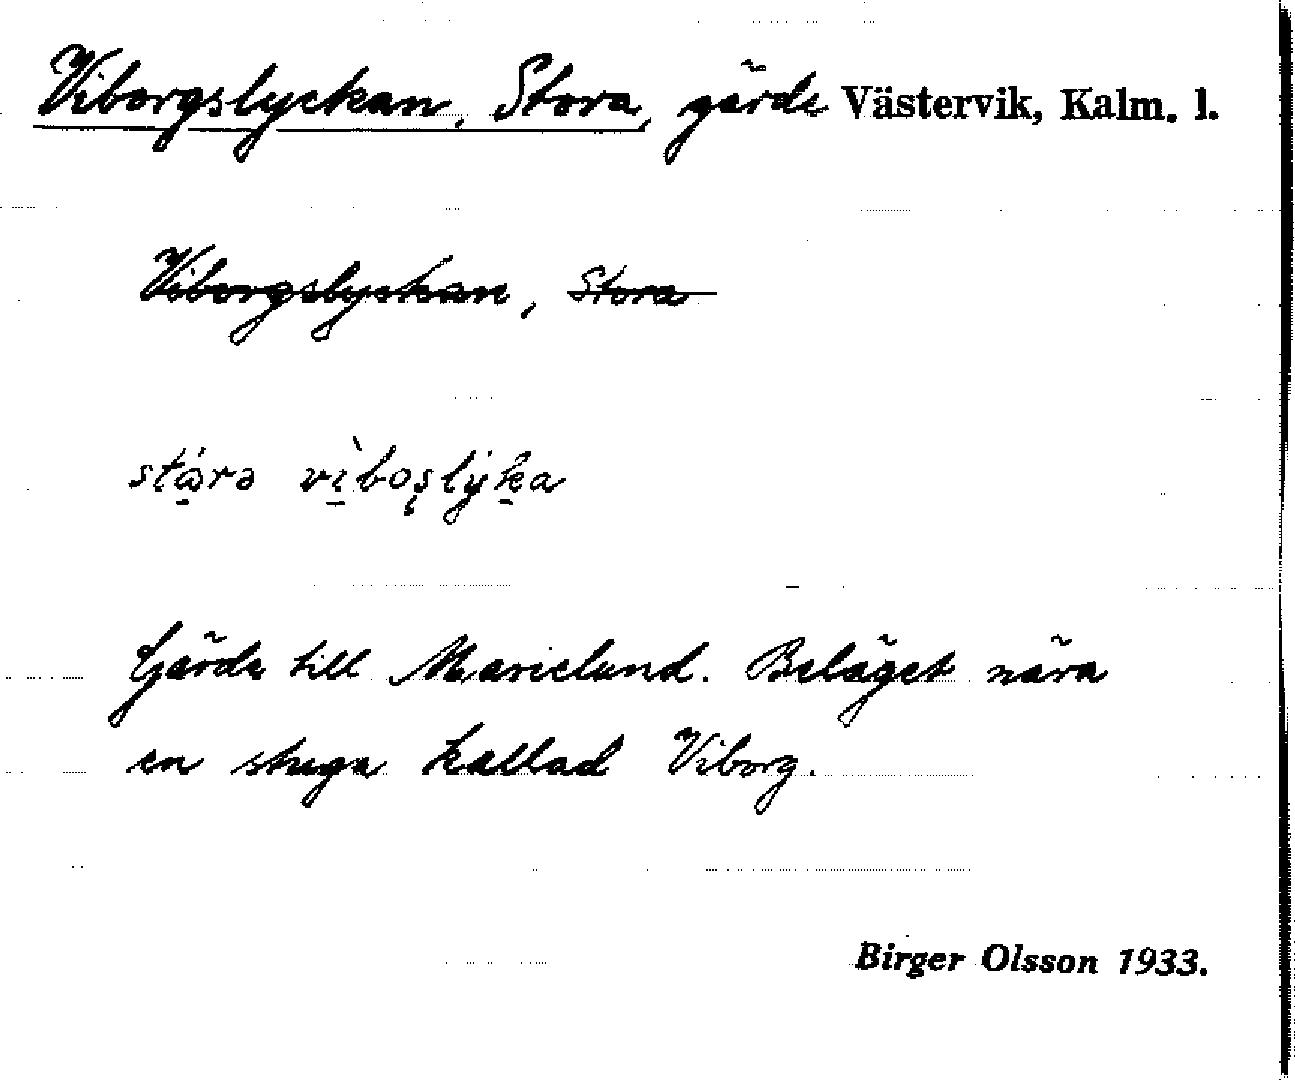 Viborgslyckan, Stora, gärde Västervik, Kalm. l.
Viborgslyckan, Stora
Gärde till Marielund. Beläget nära
en stuga kallad Viborg.
Birger Olsson 1933.